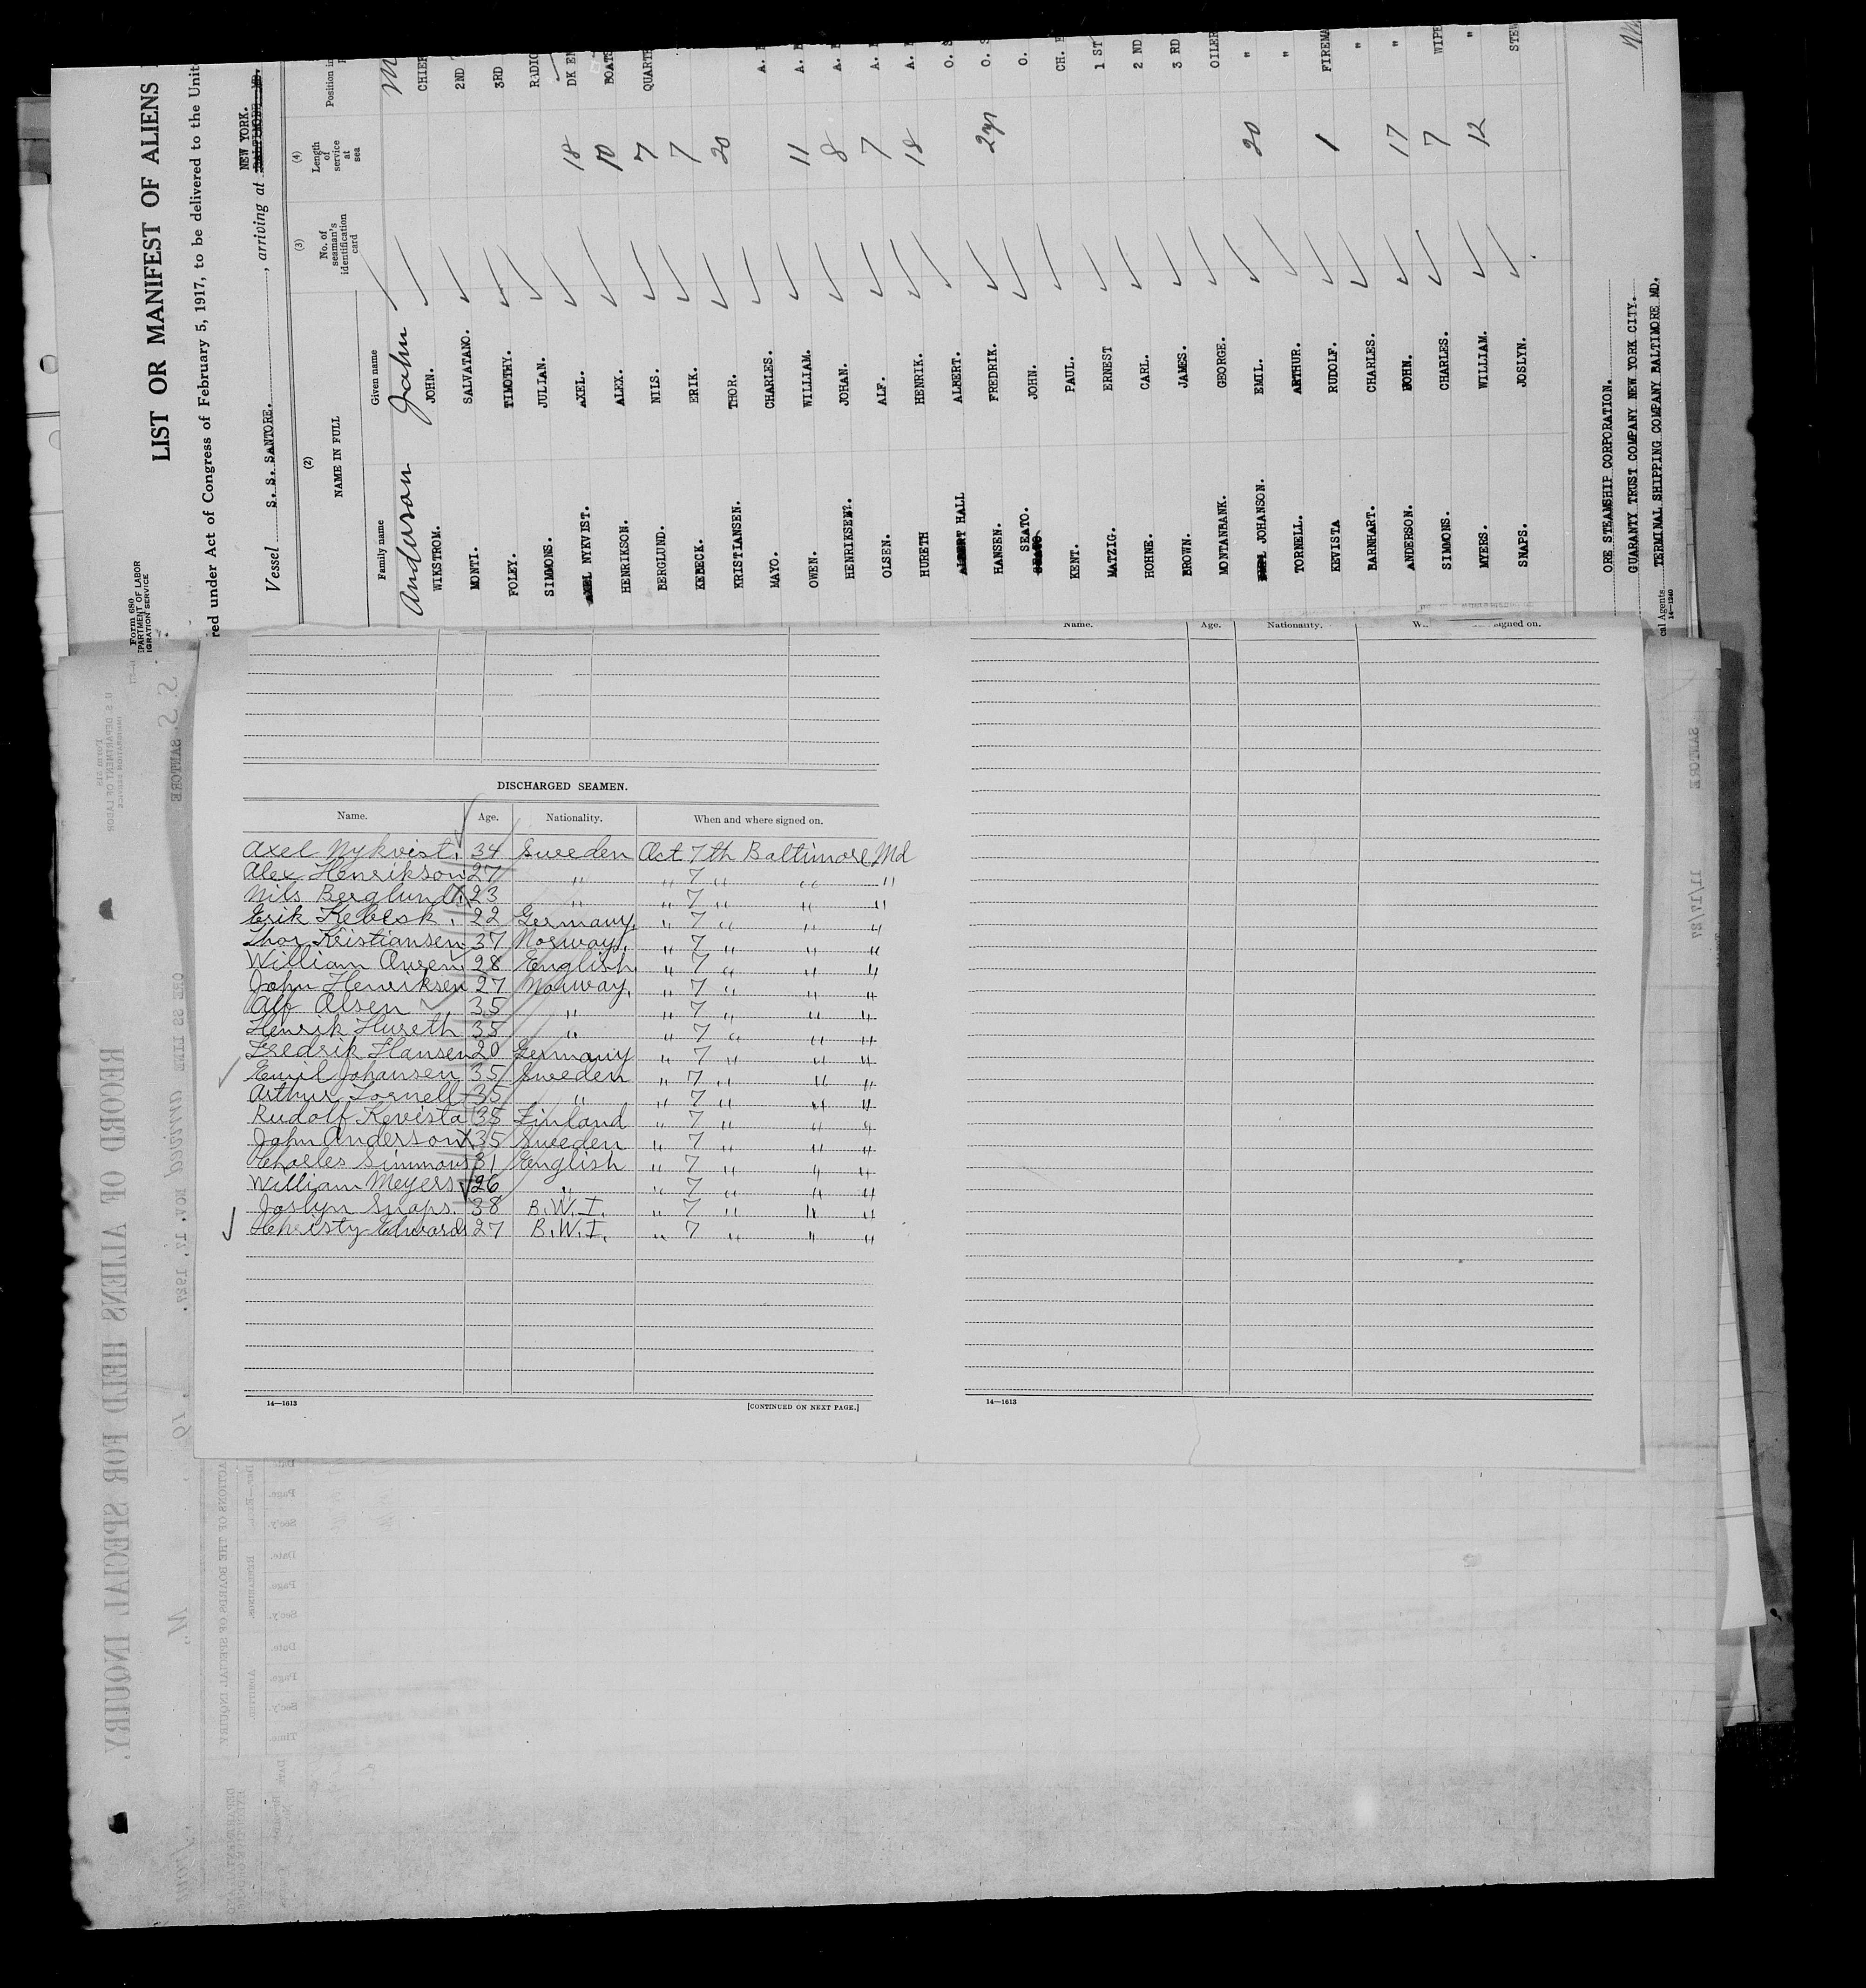 Form 680
LIST OR MANIFEST OF ALIENS
red under Act of Congress of February 5, 1917, to be delivered to the Unit
NEW YORK.
Vessel S. S. SANTORE. , arriving at BALTIMORE MD.
(2) (3) (4)
NAME IN FULL No. of seaman's identification card Length of service at sea Position in
Family name Given name
Anderson John
WIKSTROM. JOHN. CHIEF
MONTI. SALVATANO. 2ND
FOLEY. TIMOTHY. 3RD
SIMMONS. JULIAN. RADIO
AXEL NYKVIST. AXEL. 18 DK EN
HENRIKSON. ALEX. 10 BOATS
BERGLUND. NILS. 7 QUART
KEBECK. ERIK. 7
KRISTIANSEN. THOR. 20
MAYO. CHARLES. A.
OWEN. WILLIAM. 11 A.
HENRIKSENT. JOHAN. 8 A.
OLSEN. ALF. 7 A.
HURETH HENRIK. 18 A.
ALBERT HALL ALBERT. O. S
HANSEN. FREDRIK. 2 yr O. S
SEATO. JOHN. O.
KENT. PAUL. CH.
MATZIG. ERNEST 1 ST
HOHNE. CARL. 2 ND
BROWN. JAMES. 3 RD
MONTANBANK. GEORGE. OILER
EMIL JOHANSON. EMIL. 20 "
TORNELL. ARTHUR. "
KEVISTA RUDOLF. 1 FIREMA
BARNHART. CHARLES. "
ANDERSON. JOHN. 17 "
SIMMONS. CHARLES. 7 WIPE
MYERS. WILLIAM. 12 "
SNAPS. JOSLYN. STEW
ORE STEAMSHIP CORPORATION.
GUARANTY TRUST COMPANY NEW YORK CITY.
TERMINAL SHIPPING COMPANY BALTIMORE MD.
cal Agents.
14—1240
Name. Age. Nationality. signed on.
DISCHARGED SEAMEN.
Name. Age. Nationality. When and where signed on.
Axel Nykvist. 34 Sweden Oct 7th Baltimore Md
Alex Henrikson 27 " " 7 " " "
Nils Berglund 23 " " 7 " " "
Erik Kebesk. 22 Germany. " 7 " " "
Thor Kristiansen 37 Norway. " 7 " " "
William Owen. 28 English. " 7 " " "
John Henriksen 27 Norway. " 7 " " "
Alf Olsen 35 " " 7 " " "
Henrik Hureth 38 " " 7 " " "
Fredrik Hansen 20 Germany " 7 " " "
Emil Johansen 35 Sweden " 7 " " "
Arthur Tornell 35 " " 7 " " "
Rudolf Kevista 38 Finland " 7 " " "
John Anderson 35 Sweden " 7 " " "
Charles Simmons 31 English " 7 " " "
William Meyers 26 " " 7 " " "
Joslyn Snaps. 38 B.W.I. " 7 " " "
Christy Edwards 27 B.W.I. " 7 " " "
14—1613 [CONTINUED ON NEXT PAGE.]
14—1613
RECORD OF ALIENS HELD FOR SPECIAL INQUIRY.
S. S. SANTORE
arrived NOV. 17, 1927.
SANTORE 11/17/27